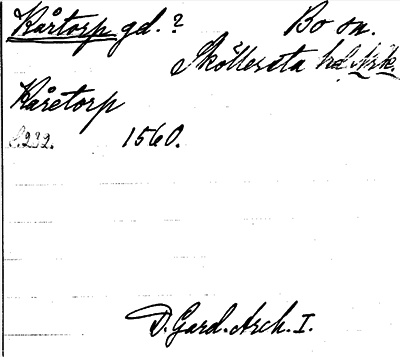 Kårtorp gd. ? Bo sn.
Sköllersta hd. Nrk.
Kåretorp
S.232. 1560.
D. Gard. Arch. I.